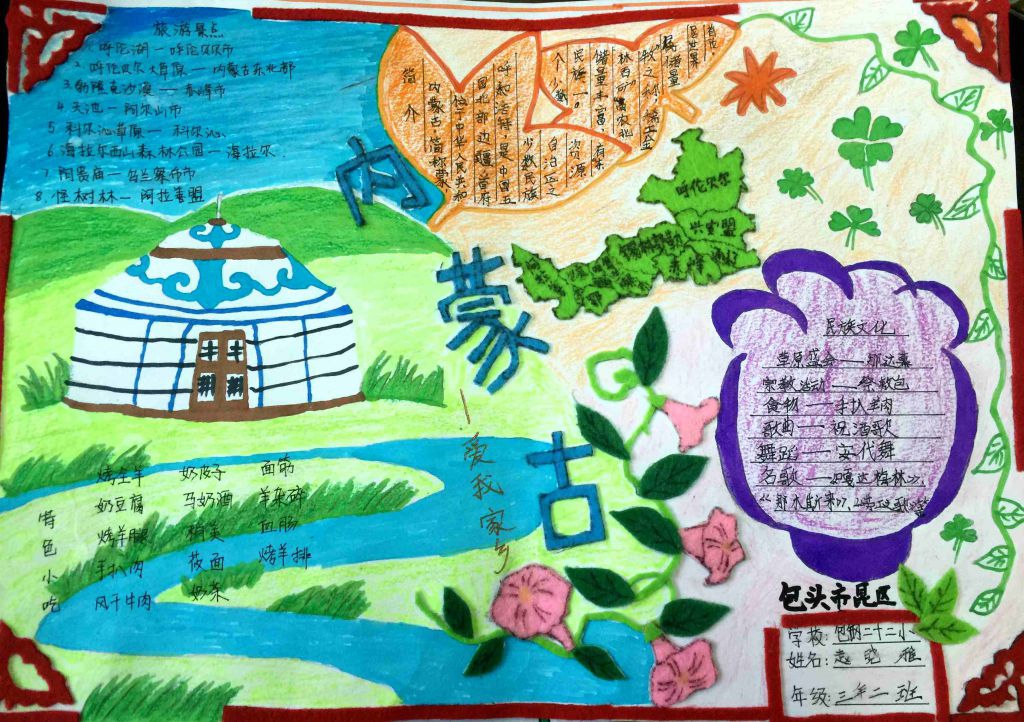 旅游景点
1. 呼伦湖—呼伦贝尔市
2. 呼伦贝尔大草原—内蒙古东北部
3. 勃隆克沙漠—赤峰市
4. 天池—阿尔山市
5. 科尔沁草原—科尔沁
6. 海拉尔西山森林公园—海拉尔
7. 阿贵庙—乌兰察布市
8. 怪树林—阿拉善盟
简介
内蒙古,简称蒙
位于中华人民共和
国北部边疆,首府
呼和浩特,是中国五
个少数民族
自治区之
民族一。
资源
储量丰富,有东
林西矿,南农北
牧之称,稀土金
属储量
居世界
首位
内蒙古
—爱我家乡
呼伦贝尔
兴安盟
通辽
民族文化
草原盛会——那达慕
宗教活动——祭敖包
食物——手扒羊肉
歌曲——祝酒歌
舞蹈——安代舞
名歌——《嘎达梅林》、
特色小吃
烤全羊 奶皮子 面筋
奶豆腐 马奶酒 羊杂碎
烤羊腿 稍美 血肠
手扒肉 莜面 烤羊排
风干牛肉 奶茶
包头市昆区
学校:包钢二十二小
姓名:赵晓雅
年级:三年二班